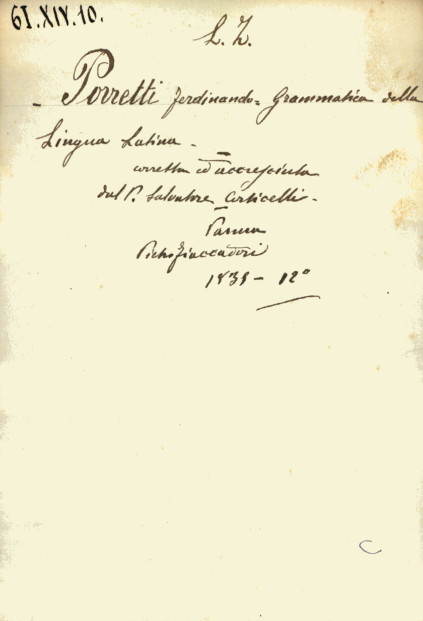 61.XIV.10.
L. Z.
- Porretti Ferdinando = Grammatica della
Lingua Latina -
corretta ed accresciuta
dal P. Salvatore Corticelli -
Parma
Fiaccadori
1831 - 12°
C